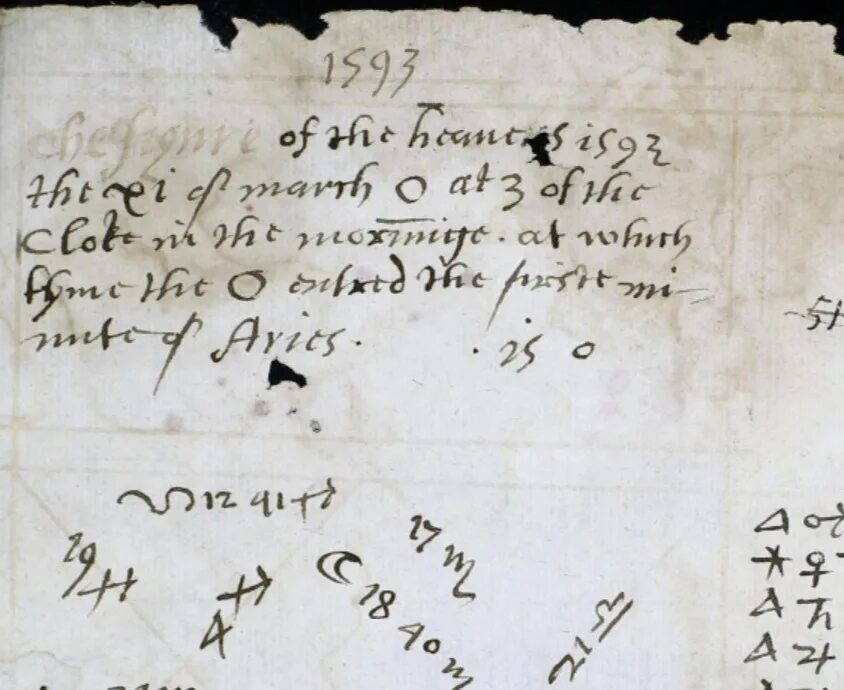 1593
the figure of the heavens 1593
the xi of march ☉ at 3 of the
Cloke in the morninge. at which
tyme the ☉ entred the firste mi-
nute of Aries. . 15 0
12 41 ♐
19 ♓
♐
4
☾
17 ♏
18
40 ♏
21 ♎
△ ♂
⚹ ♀
△ ♄
△ ♃